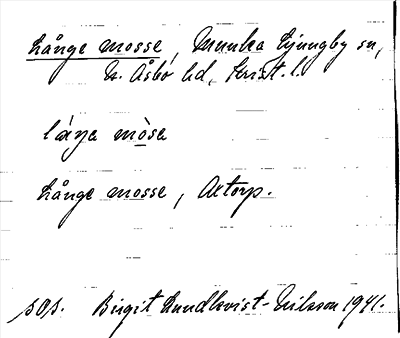 Långe mosse, Munka Ljungby sn,
N. Åsbo hd, Krist. l.
låŋa mòsa
Långe mosse, Axtorp.
sOs. Birgit Lundkvist-Nilsson 1941.